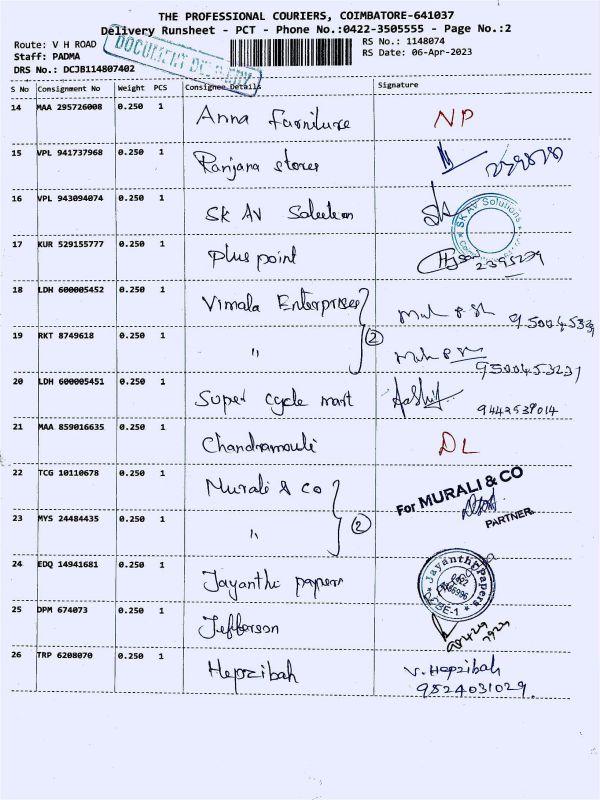 THE PROFESSIONAL COURIERS, COIMBATORE-641037
Delivery Runsheet - PCT - Phone No.:0422-3505555 - Page No.:2
Route: V H ROAD
Staff: PADMA
DRS No.: DCJB114807402
DOCUMENT
RS No.: 1148074
RS Date: 06-Apr-2023
S No Consignment No Weight PCS Consignee Details Signature
14 MAA 295726008 0.250 1 Anna Furniture NP
15 VPL 941737968 0.250 1 Ranjana stores
16 VPL 943094074 0.250 1 SK AV Solution SK AV Solutions
17 KUR 529155777 0.250 1 Plus point
18 LDH 600005452 0.250 1 Vimala Enterprises
19 RKT 8749618 0.250 1 " 2 9500453231
20 LDH 600005451 0.250 1 Super cycle mart 9442538014
21 MAA 859016635 0.250 1 Chandramouli DL
22 TCG 10110678 0.250 1 Murali & co For MURALI & CO
PARTNER.
23 MYS 24484435 0.250 1 " 2
24 EDQ 14941681 0.250 1 Jayanthi papers Jayanthi Papers CBE-1
25 DPM 674073 0.250 1 Jefferson
26 TRP 6208070 0.250 1 Hepzibah V. Hepzibah
9524031029.